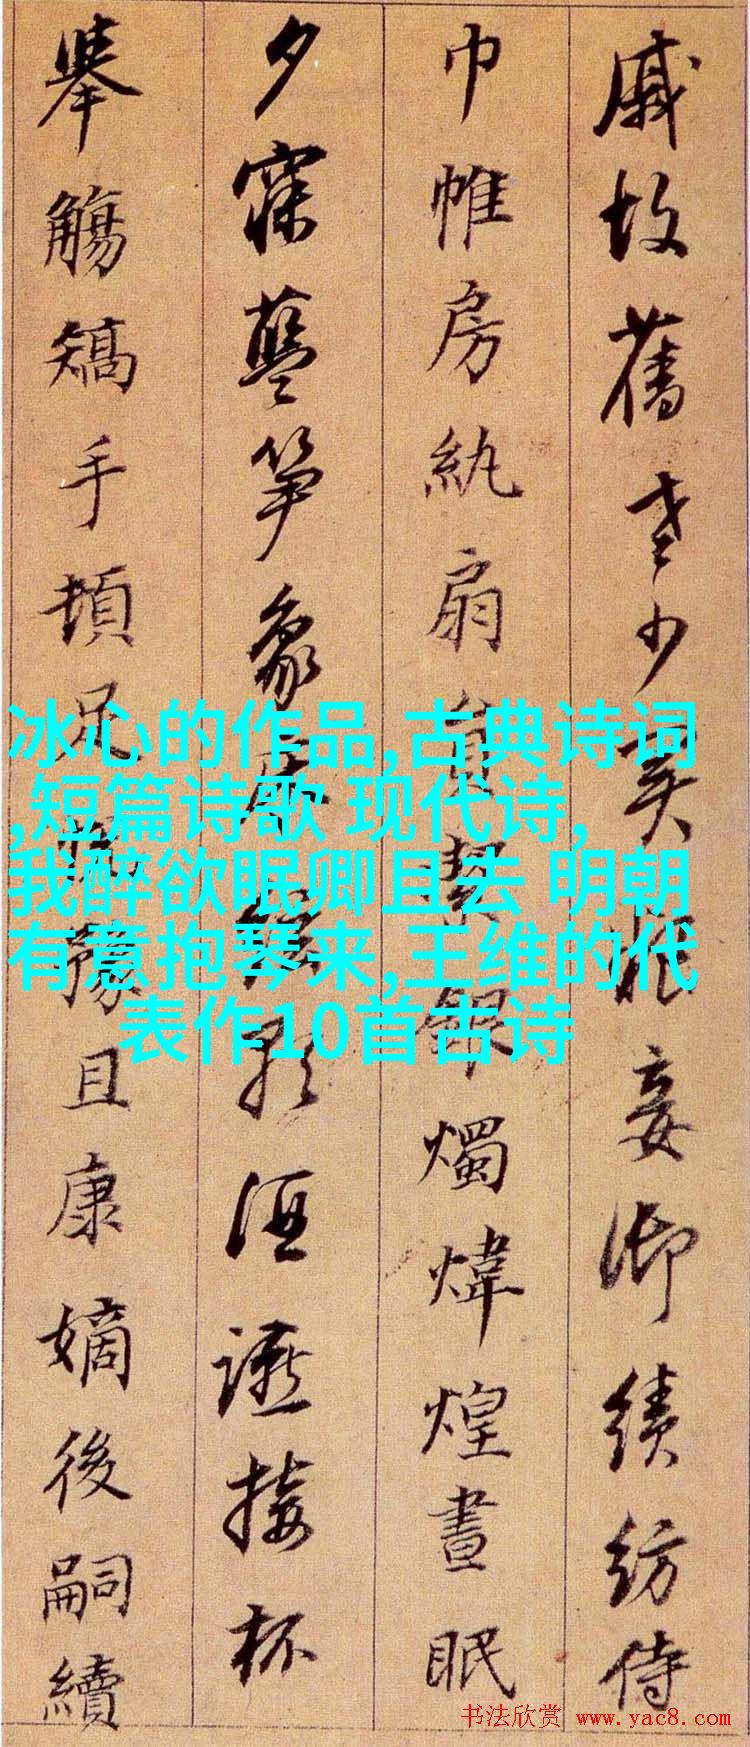 戚故舊老少異粮妾御績紡侍
巾帷房紈扇員絜銀燭煒煌晝眠
夕寐藍笋象床絃歌酒讌接杯
舉觴矯手頓足悅豫且康嫡後嗣續
冰心的作品,古典诗词
,短篇诗歌 现代诗,
我醉欲眠卿且去 明朝
有意抱琴来,王维的代
表作10首古诗
书法欣赏 www.yac8.com